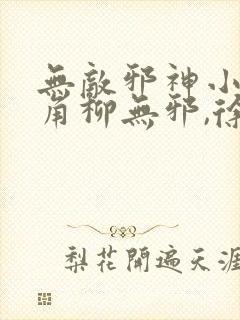 無敵邪神小
角柳無邪,徐
梨花開遍天涯